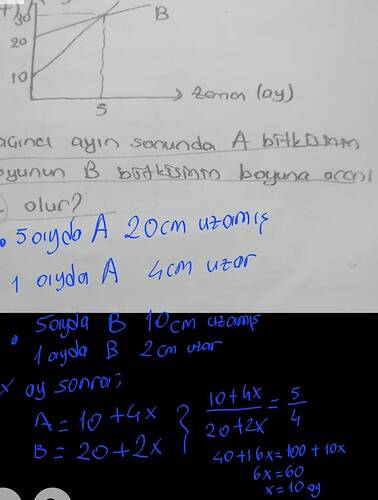 30
B
20
10
5
zaman (ay)
ayın sonunda A bitkisinin
B bitkisinin boyuna oranı
olur?
5 ayda A 20cm uzamış
1 ayda A 4cm uzar
5 ayda B 10cm uzamış
1 ayda B 2cm uzar
x ay sonra;
A = 10 + 4x
B = 20 + 2x
10 + 4x / 20 + 2x = 5 / 4
40 + 16x = 100 + 10x
6x = 60
x = 10 ay